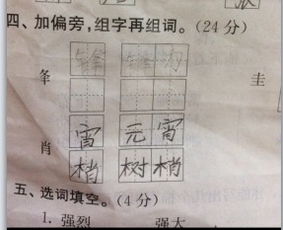 四、加偏旁,组字再组词。(24 分)
夆 锋
圭
肖 宵 元宵
梢 树梢
五、选词填空。(4 分)
1. 强烈 强大